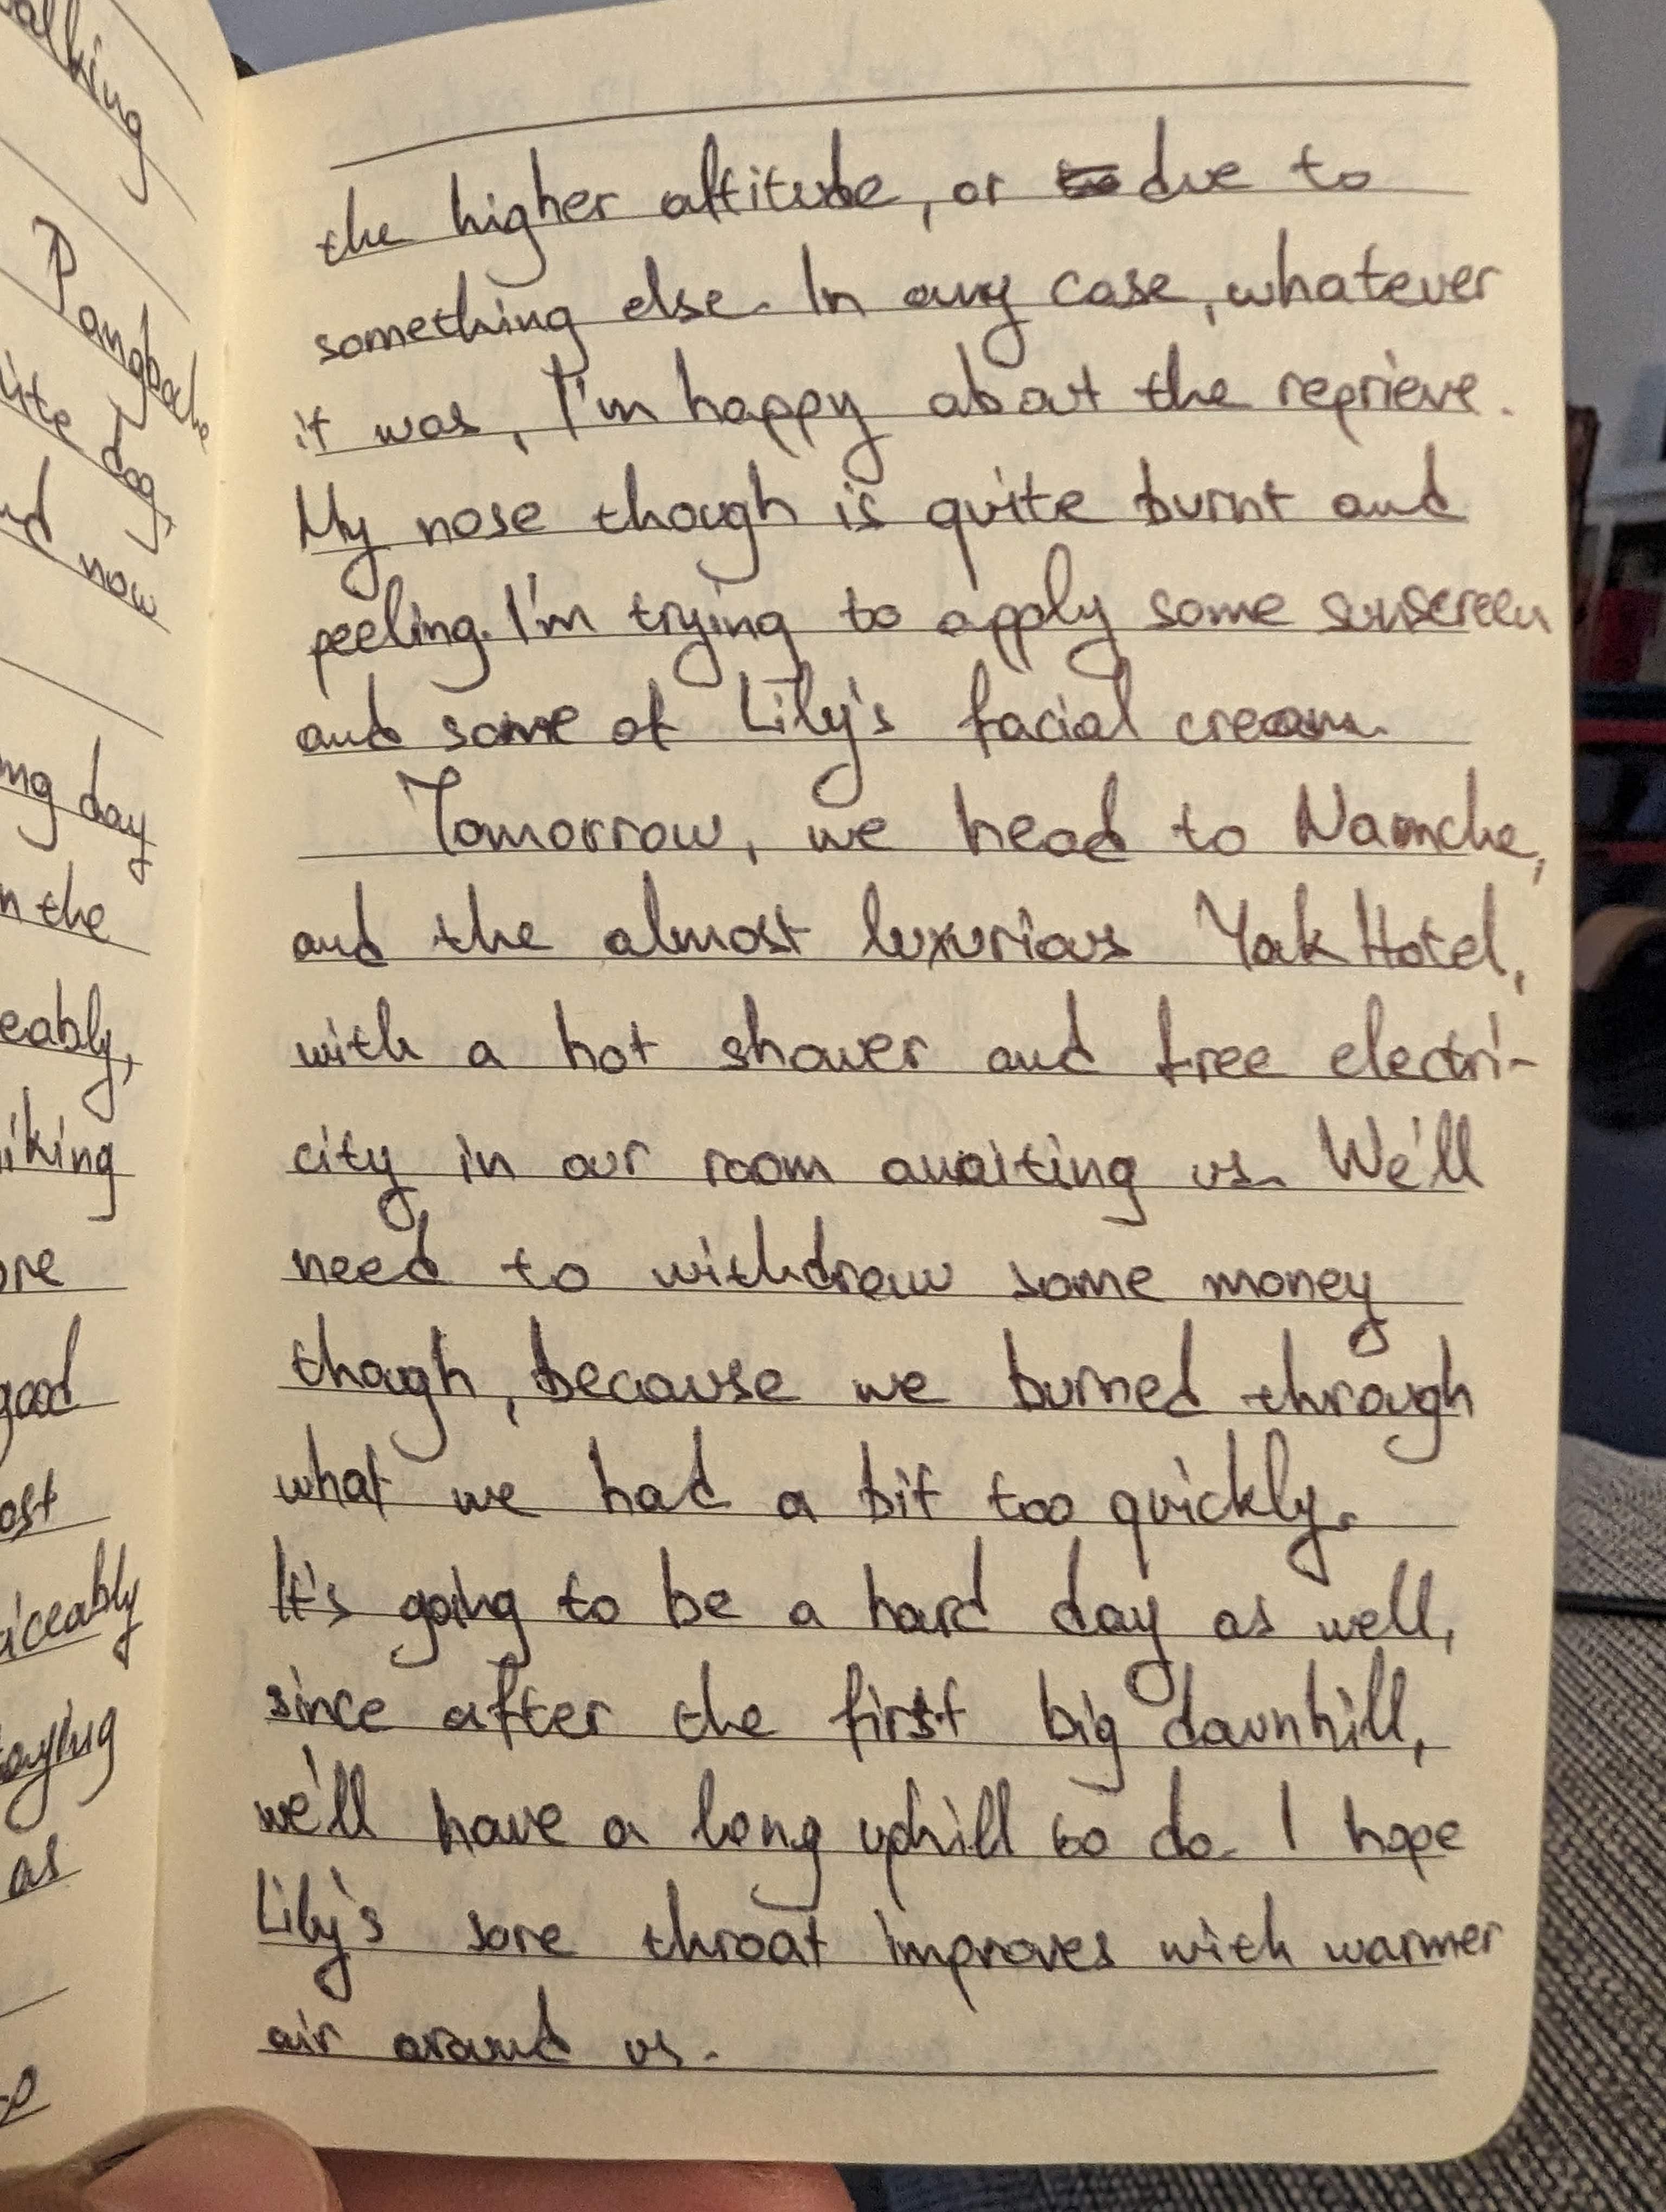 alking
Pangboche
ite dog,
nd now
ng day
n the
eably,
iking
ore
good
ost
iceably
aying
as
the higher altitude, or to due to
something else. In any case, whatever
it was, I'm happy about the reprieve.
My nose though is quite burnt and
peeling. I'm trying to apply some sunscreen
and some of Lily's facial cream.
Tomorrow, we head to Namche,
and the almost luxurious Yak Hotel,
with a hot shower and free electri-
city in our room awaiting us. We'll
need to withdraw some money
though, because we burned through
what we had a bit too quickly.
It's going to be a hard day as well,
since after the first big downhill,
we'll have a long uphill to do. I hope
Lily's sore throat improves with warmer
air around us.